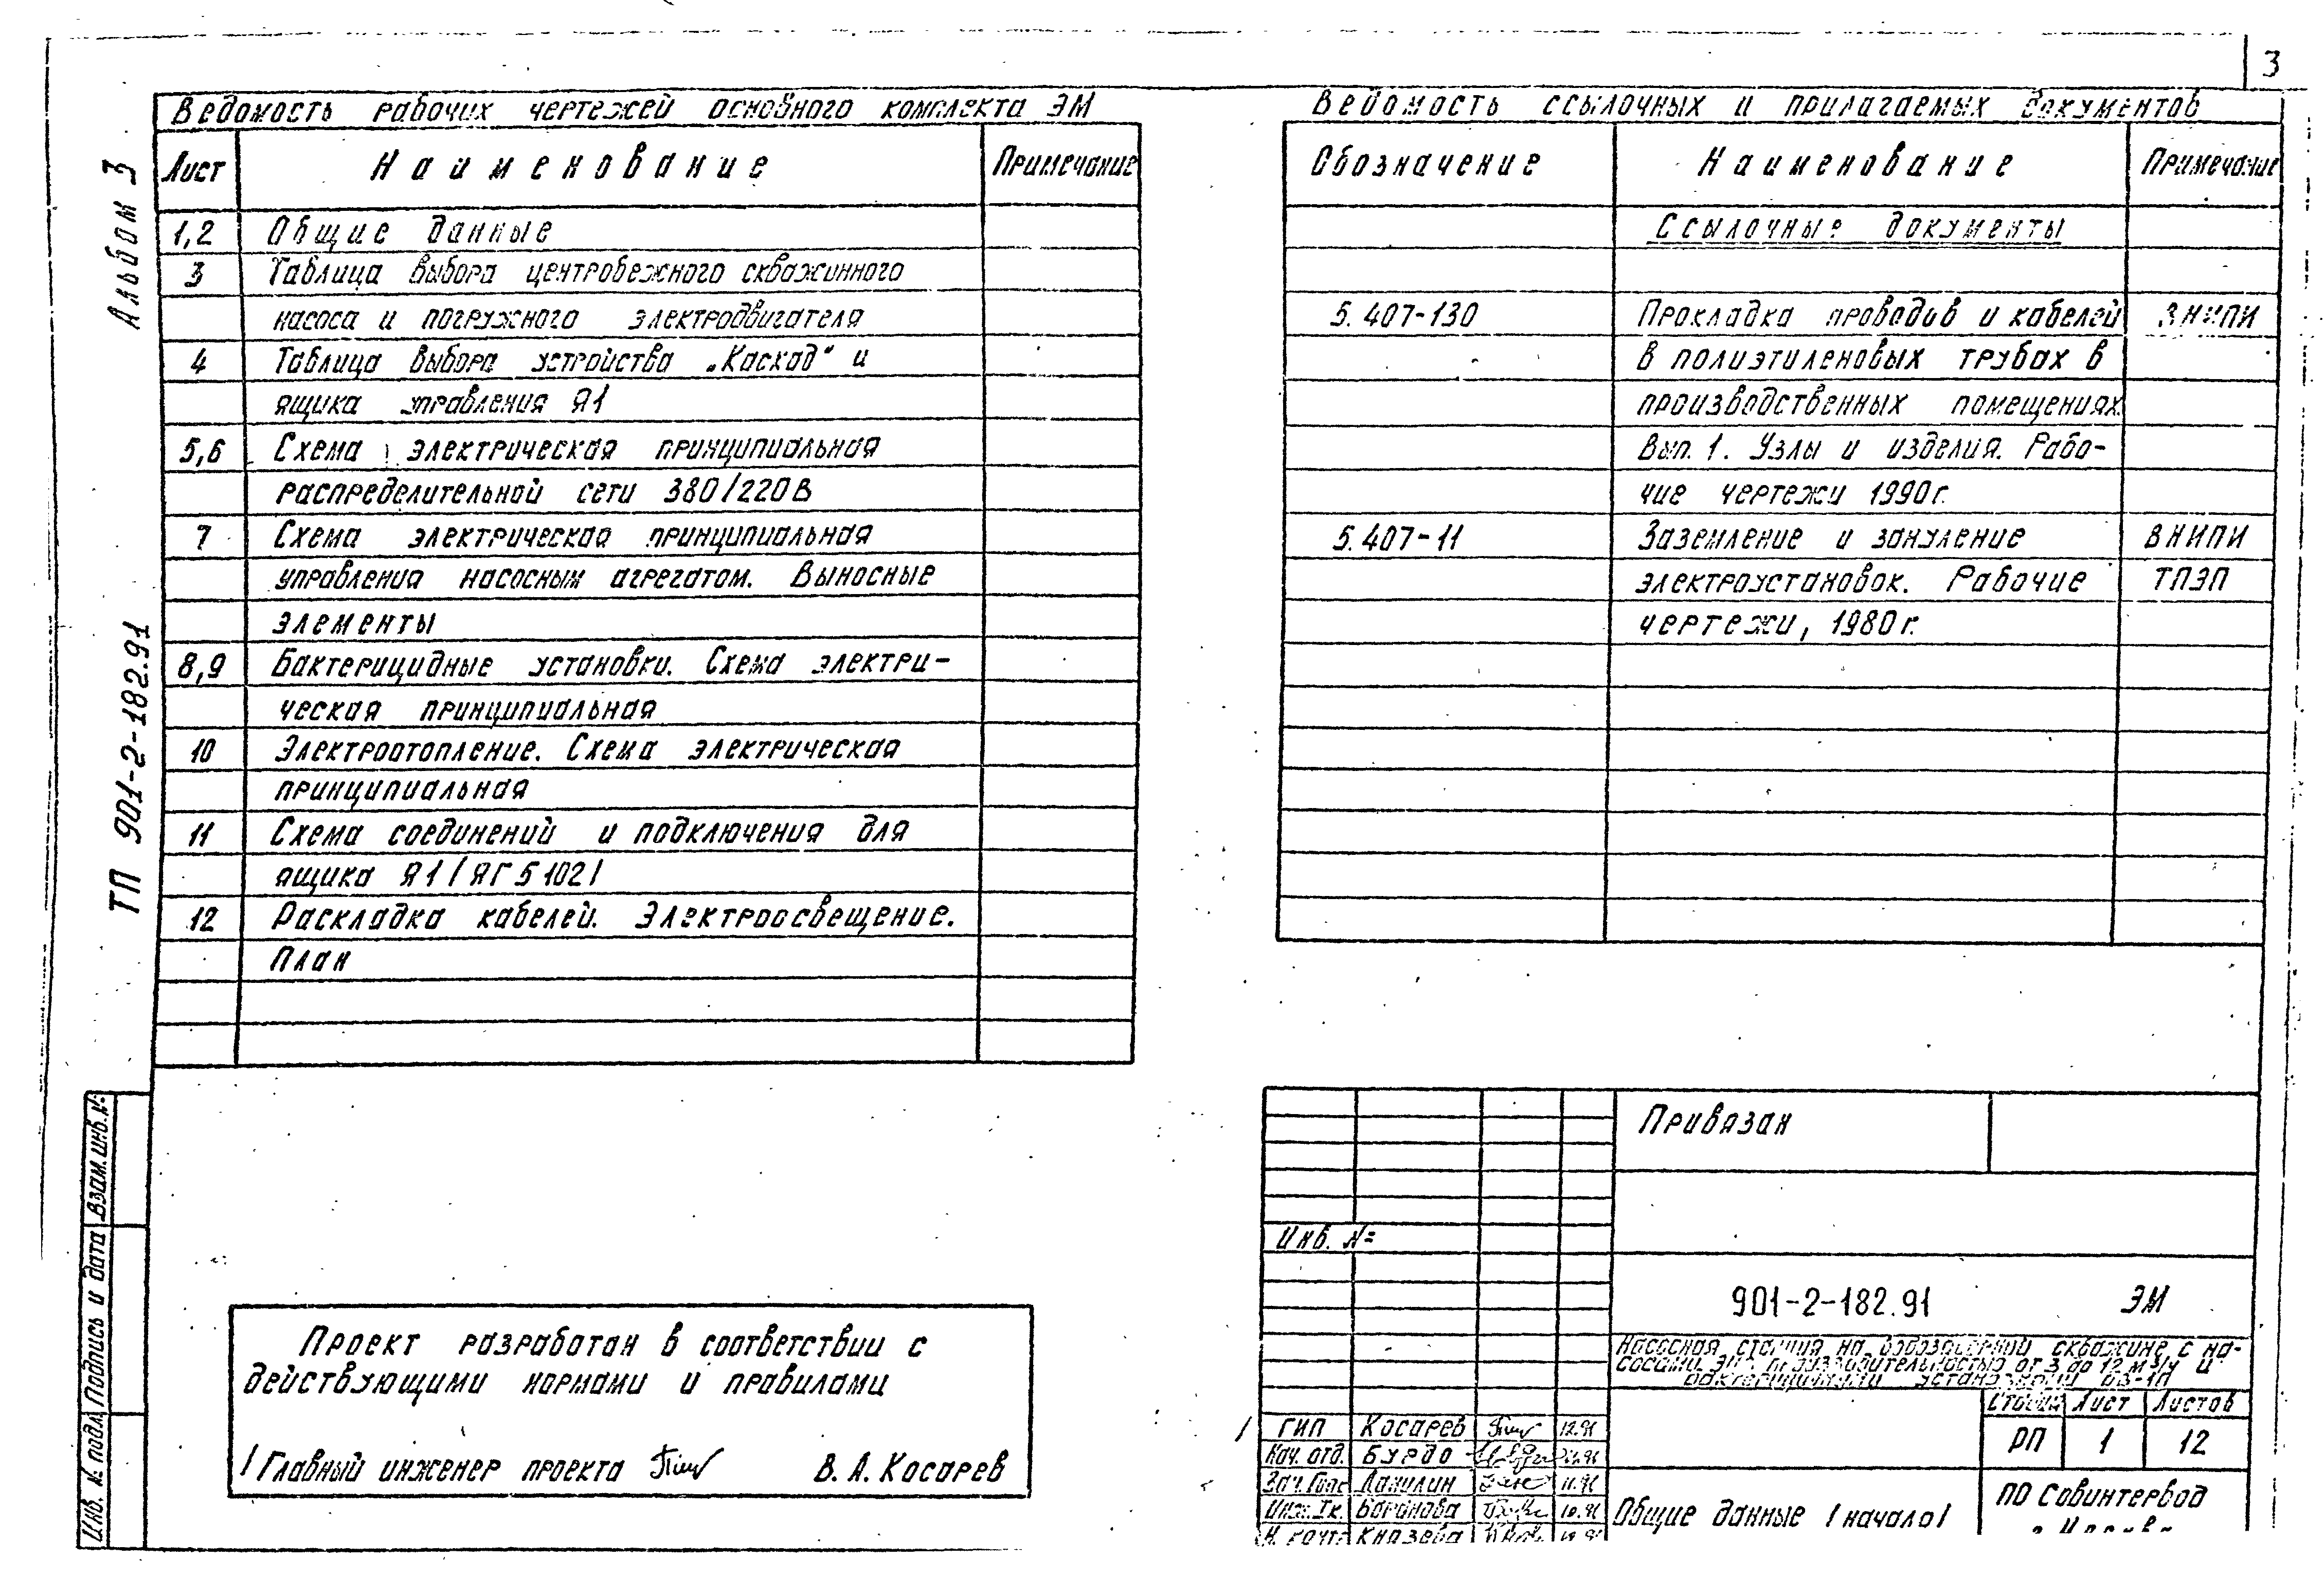 3
Альбом 3
ТП 901-2-182.91
Ведомость рабочих чертежей основного комплекта ЭМ
Лист Наименование Примечание
1,2 Общие данные
3 Таблица выбора центробежного скважинного
насоса и погружного электродвигателя
4 Таблица выбора устройства „Каскад" и
ящика управления Я1
5,6 Схема электрическая принципиальная
распределительной сети 380/220В
7 Схема электрическая принципиальная
управления насосным агрегатом. Выносные
элементы
8,9 Бактерицидные установки. Схема электри-
ческая принципиальная
10 Электроотопление. Схема электрическая
принципиальная
11 Схема соединений и подключения для
ящика Я1 /ЯГ5102/
12 Раскладка кабелей. Электроосвещение.
План
Ведомость ссылочных и прилагаемых документов
Обозначение Наименование Примечание
Ссылочные документы
5.407-130 Прокладка проводов и кабелей ВНИПИ
в полиэтиленовых трубах в
производственных помещениях.
Вып. 1. Узлы и изделия. Рабо-
чие чертежи 1990г.
5.407-11 Заземление и зануление ВНИПИ
электроустановок. Рабочие ТПЭП
чертежи, 1980г.
Взам. инв. №
Подпись и дата
Инв. № подл.
Проект разработан в соответствии с
действующими нормами и правилами
/Главный инженер проекта В. А. Косарев
Привязан
Инв. №
901-2-182.91 ЭМ
Насосная станция на водозаборной скважине с на-
сосами ЭЦВ производительностью от 3 до 12 м³/ч и
бактерицидными установками ОВ-1П
Стадия Лист Листов
РП 1 12
ГИП Косарев 12.91
Нач. отд. Бурдо
Данилин 11.91
Баранова 10.91
Князева
Общие данные /начало/
ПО Совинтервод